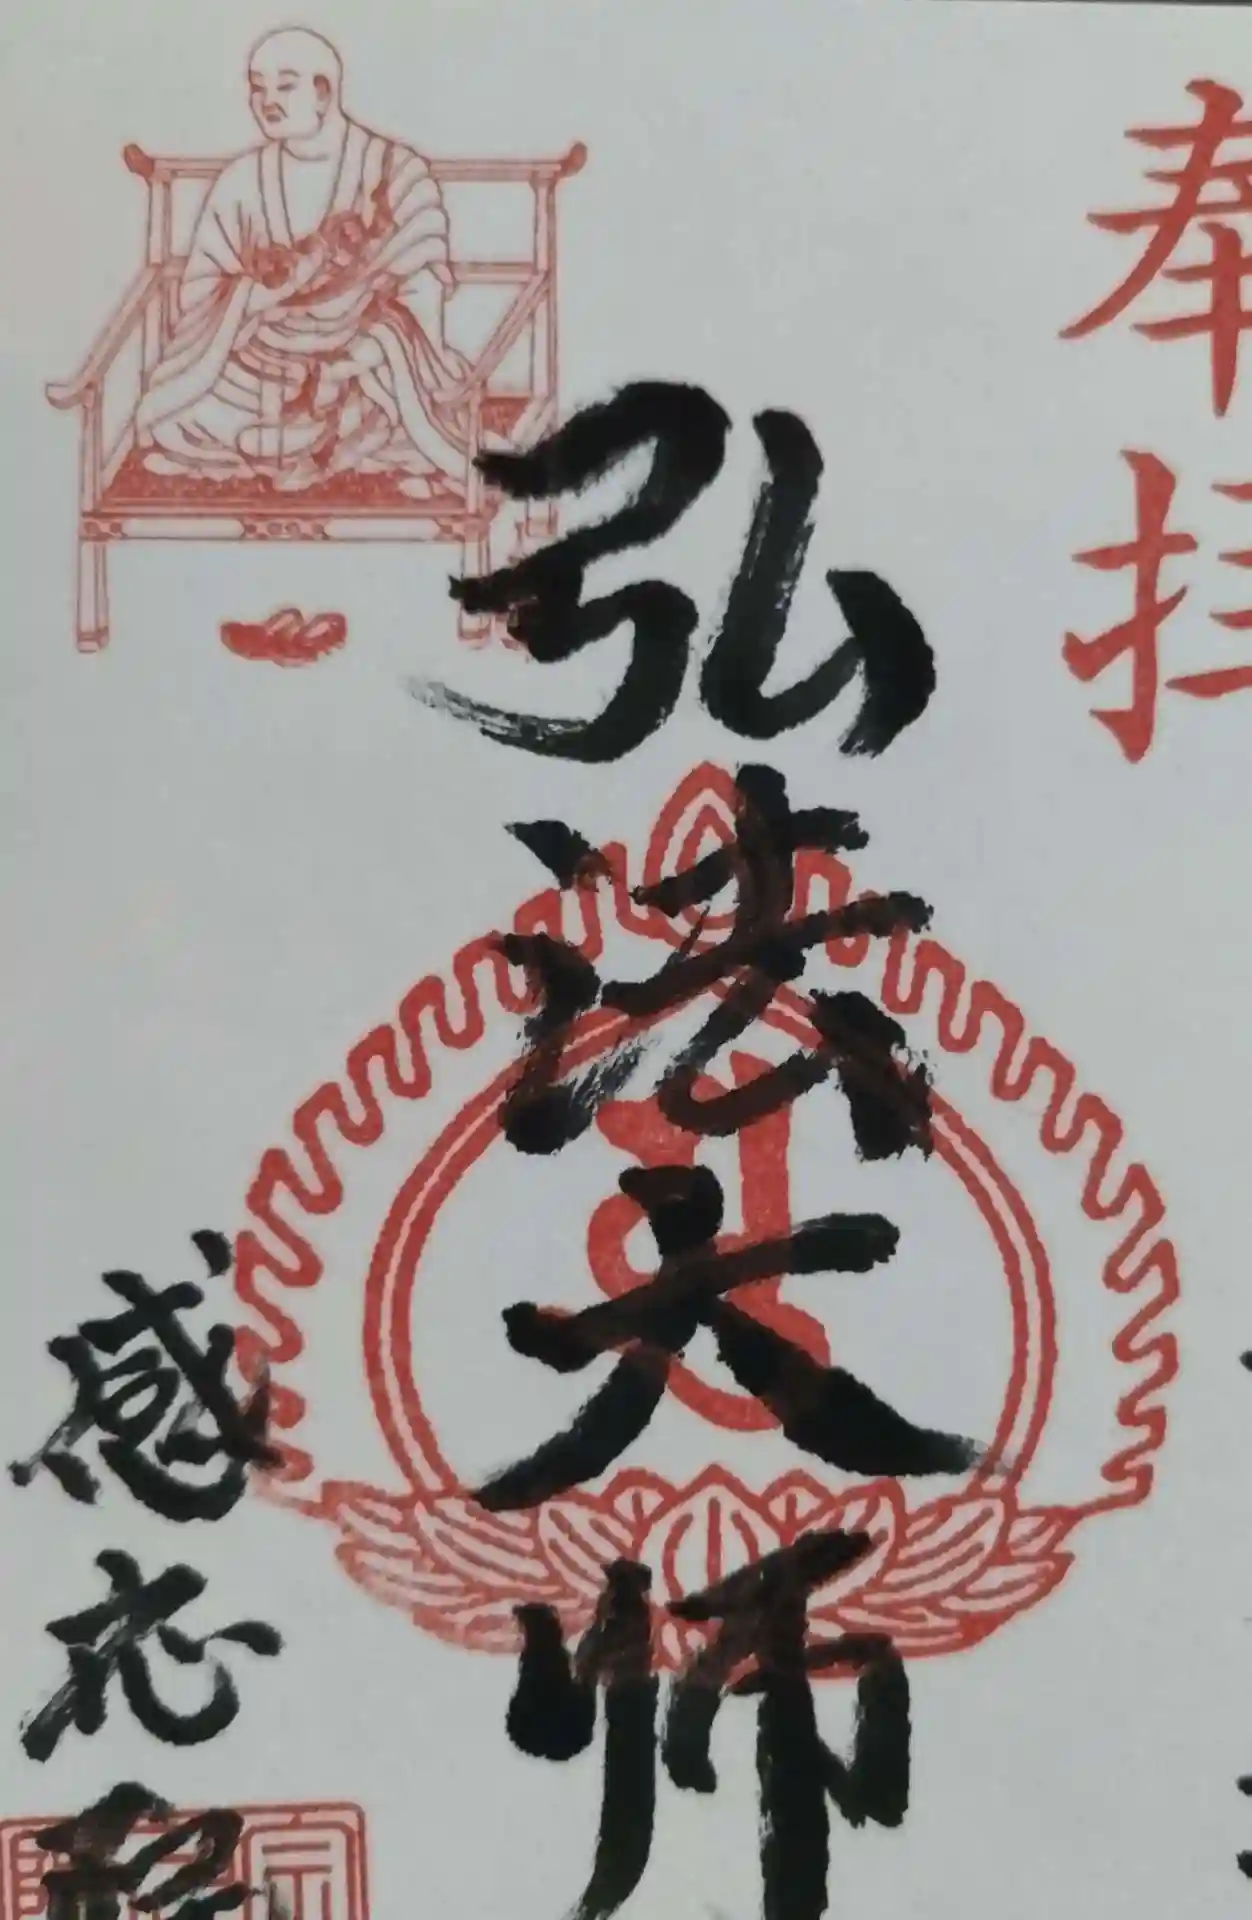 奉拝
弘法大师
感応